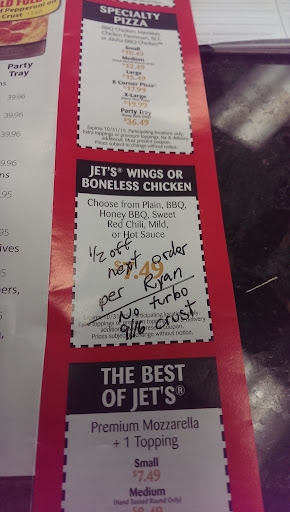 LD FOLD
Pepperoni on
Crust
Party
Tray
39.96
39.96
SPECIALTY
PIZZA
BBQ Chicken, Hawaiian
Chicken Parmesan, BLT,
or Aloha BBQ Chicken
Small
$10.49
Medium
$12.49
Large
$15.49
8 Corner Pizza®
$17.99
X-Large
$19.99
Party Tray
$36.49
Expires 10/31/15. Participating locations only.
Extra toppings or premium toppings, tax & delivery
additional. Must present coupon.
Prices subject to change without notice.
JET'S® WINGS OR
BONELESS CHICKEN
Choose from Plain, BBQ,
Honey BBQ, Sweet
Red Chili, Mild,
or Hot Sauce
$7.49
1/2 off
next order
per Ryan
No turbo
9/16 crust
THE BEST
OF JET'S®
Premium Mozzarella
+ 1 Topping
Small
$7.49
Medium
(Hand Tossed Round Only)